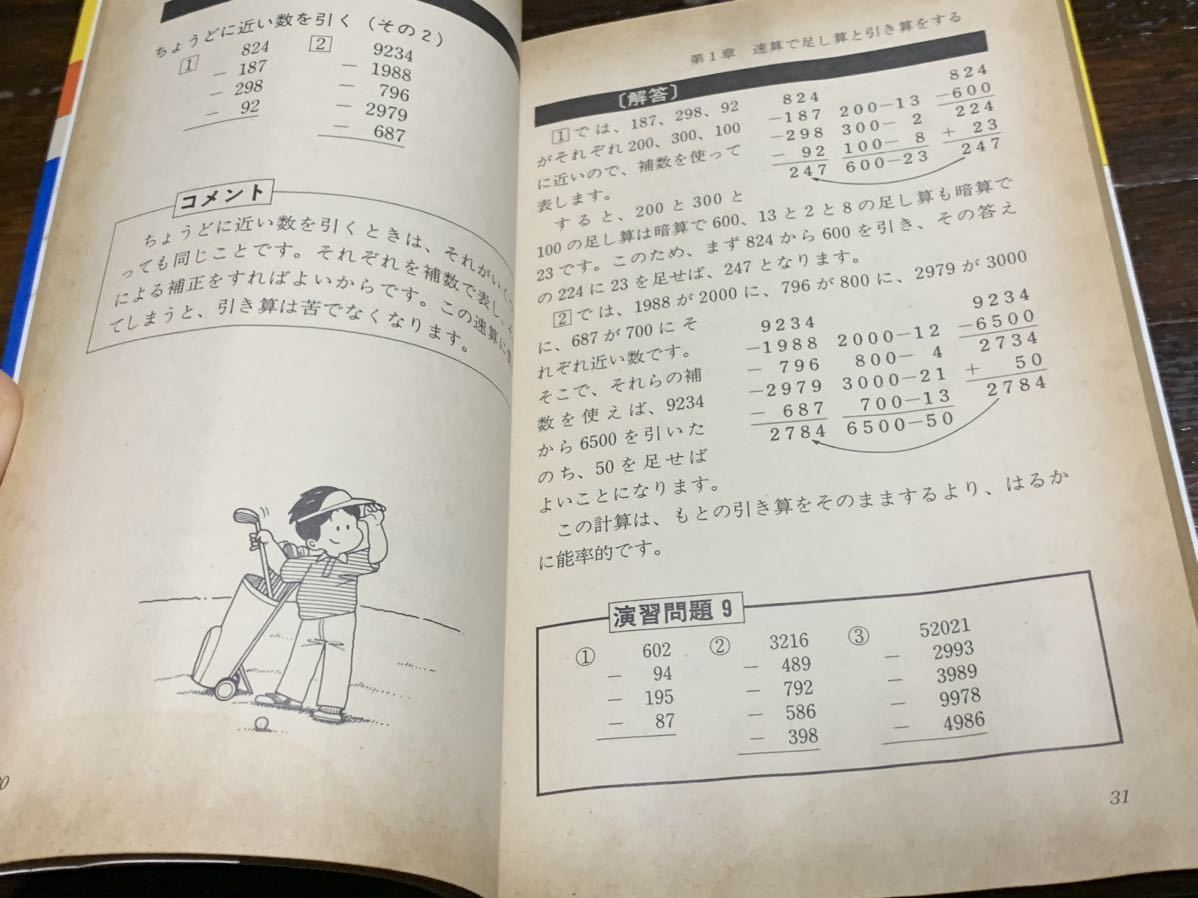 ちょうどに近い数を引く（その２）
1
824
－ 187
－ 298
－ 92
2
9234
－ 1988
－ 796
－ 2979
－ 687
コメント
ちょうどに近い数を引くときは、それがいく
っても同じことです。それぞれを補数で表し、
による補正をすればよいからです。この速算に
てしまうと、引き算は苦でなくなります。
第１章 速算で足し算と引き算をする
〔解答〕
1では、187、298、92
がそれぞれ200、300、100
に近いので、補数を使って
表します。
すると、200と300と
100の足し算は暗算で600、13と2と8の足し算も暗算で
23です。このため、まず824から600を引き、その答え
の224に23を足せば、247となります。
824
－187 200－13
－298 300－ 2
－ 92 100－ 8
247 600－23
824
－600
224
＋ 23
247
2では、1988が2000に、796が800に、2979が3000
に、687が700にそ
れぞれ近い数です。
そこで、それらの補
数を使えば、9234
から6500を引いた
のち、50を足せば
よいことになります。
9234
－1988 2000－12
－ 796 800－ 4
－2979 3000－21
－ 687 700－13
2784 6500－50
9234
－6500
2734
＋ 50
2784
この計算は、もとの引き算をそのままするより、はるか
に能率的です。
演習問題 9
①
602
－ 94
－ 195
－ 87
②
3216
－ 489
－ 792
－ 586
－ 398
③
52021
－ 2993
－ 3989
－ 9978
－ 4986
31